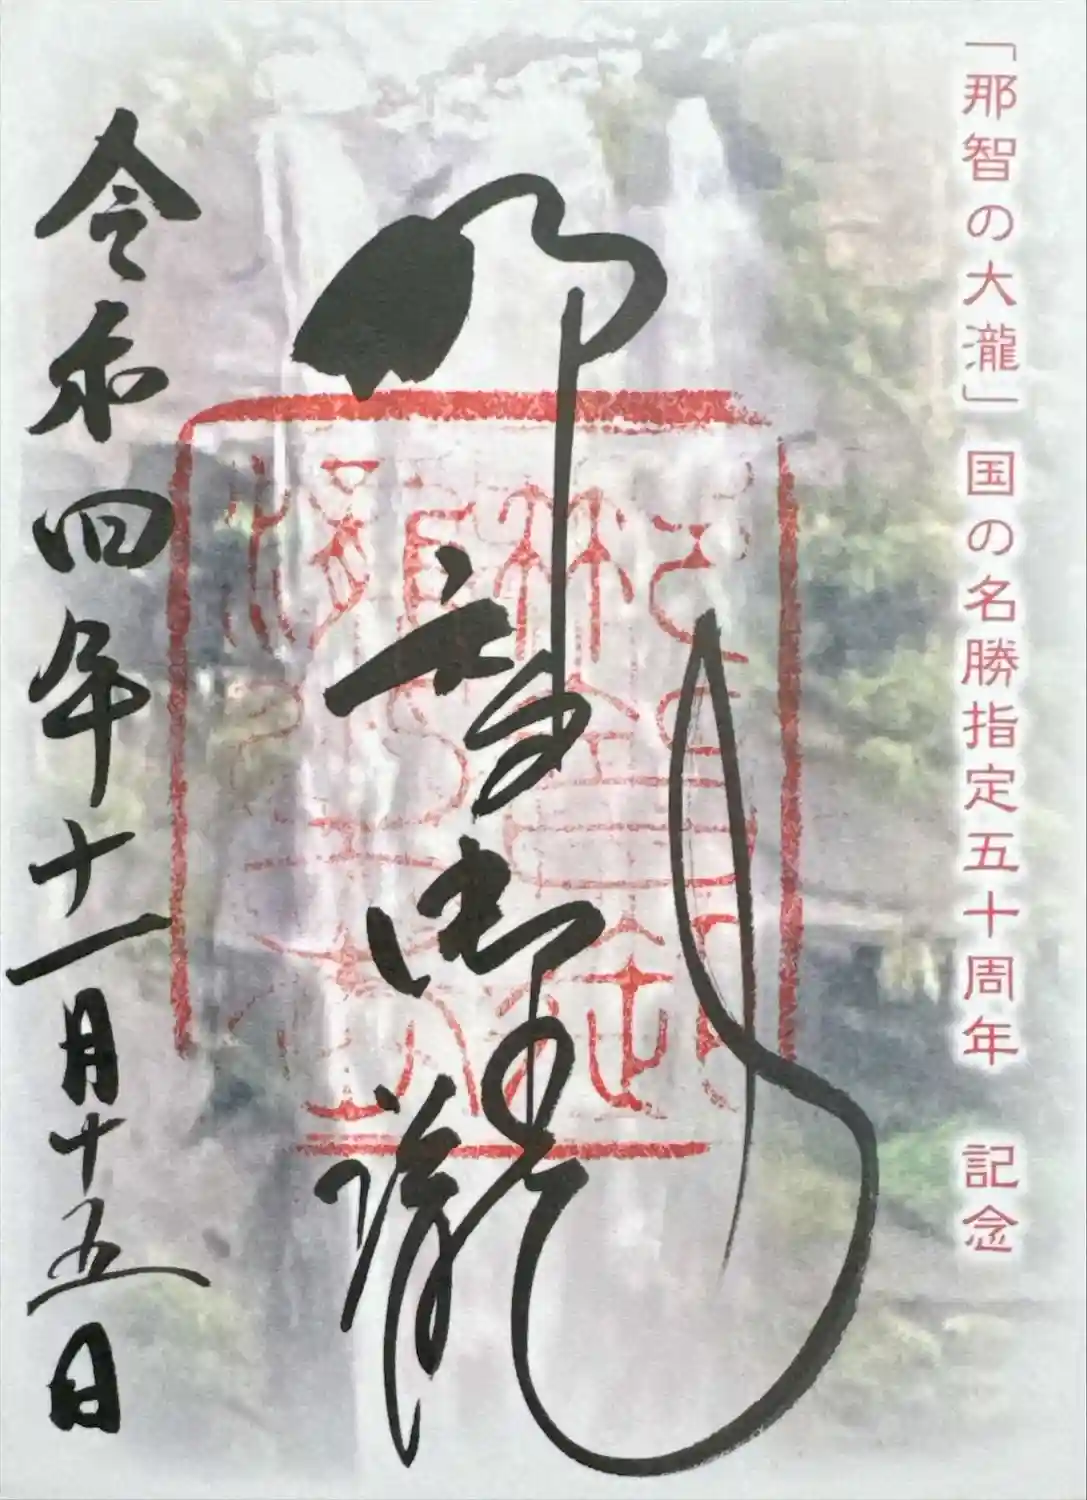 「那智の大瀧」国の名勝指定五十周年 記念
那智御瀧
令和四年十一月十五日